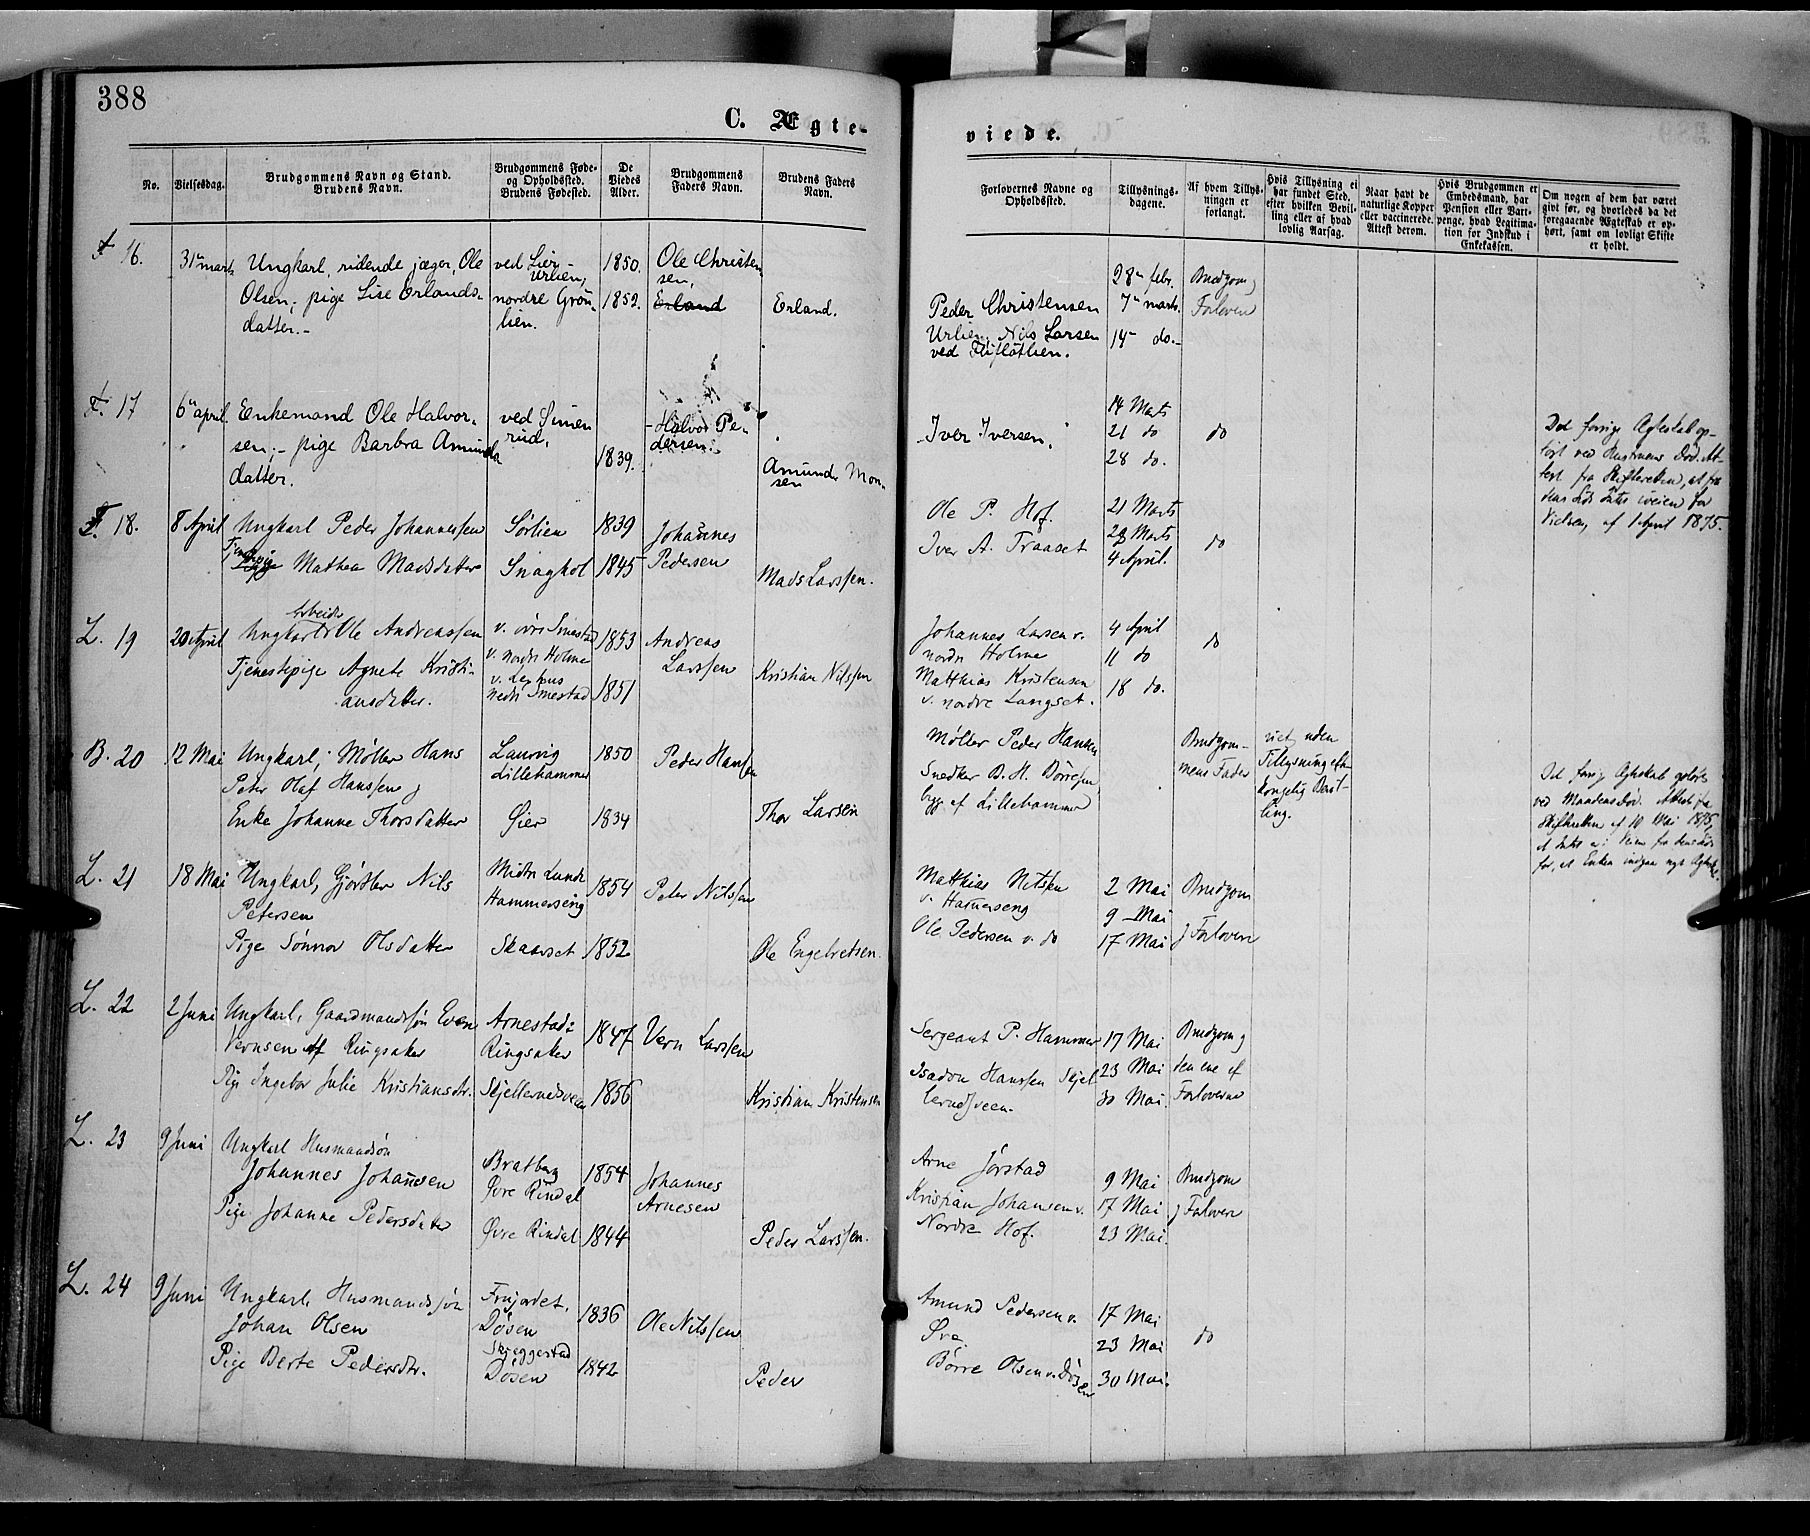 388
C. Ægte-
viede.
No.
Vielsesdag.
Brudgommens Navn og Stand.
Brudens Navn.
Brudgommens Føde-
og Opholdssted.
Brudens Fødested.
De
Viedes
Alder.
Brudgommens
Faders Navn.
Brudens Faders
Navn.
Forlovernes Navne og
Opholdssted.
Tillysnings-
dagene.
Af hvem Tillys-
ningen er
forlangt.
Hvis Tillysning ei
har fundet Sted,
efter hvilken Bevil-
ling eller af hvad
lovlig Aarsag.
Naar havt de
naturlige Kopper
eller vaccinerede.
Attest derom.
Hvis Brudgommen er
Embedsmand, har
Pension eller Vart-
penge, hvad Legitima-
tion for Indskud i
Enkekassen.
Om nogen af dem har været
gift før, og hvorledes da det
foregaaende Ægteskab er op-
hørt, samt om lovligt Skifte
er holdt.
16.
31 marts
Ungkarl, ridende jæger, Ole
Olsen; pige Lise Erlands-
datter.-
ved Lier-
Urlien,
nordre Grøn-
lien.
1850.
1852.
Ole Christen-
sen,
Erland
Erland.
Peder Christensen
Urlien, Nils Larsen
ved
28 febr.
7 marts.
14 do.
Brudgom
Forlover
F. 17
6 april
Enkemand Ole Halvor-
sen; pige Barbra Amunds
datter.
ved Simen
rud.
1839.
Halvor Pe-
dersen.
Amund Mon-
sen
Iver Iversen.
14 Marts
21 do
28 do.
do
Det forrige Ægteskab op-
hørt ved Kustruens Død. At-
test fra Skifteretten, at fra
dens Side Intet iveien for
Vielsen, af 1 April 1875.
F. 18.
8 April
Ungkarl Peder Johannessen
Tjenstepige Mathea Madsdatter
Sørlien
Snaghol
1839
1845
Johannes
Pedersen
Mads Larssen.
Ole P. Hof.
Iver A. Traaset
21 Marts
28 Marts
4 April.
do
L. 19
20 April
Arbeider
Ungkarl Ole Andreassen
Tjenestepige Agnete Kristi-
ansdatter.
v. øvre Smestad
v. nordre Holme
nedre Smestad
1853
1851
Andreas
Larssen
Kristian Nilssen
Johannes Larsen v.
nordre Holme
Matthias Kristensen
v. nordre Langset.
4 April
11 do
18 do.
do
B. 20
12 Mai
Ungkarl, Møller Hans
Peter Olaf Hanssen
Enke Johanne Thorsdatter
Laurvig
Lillehammer
Øier
1850
1834
Peder Hanssen
Thor Larsen
Møller Peder Hansen
Snedker B. H. Børresen
begge af Lillehammer
Brudgom-
mens Fader
viet uden
Tillysning efter
kongelig Bevil-
ling.
Det forrige Ægteskab opløst
ved Mandens Død. Attest fra
Skifteretten af 10 Mai 1875,
at Intet er i Veien fra dens Side
for, at Enken indgaar nyt Ægtesk.
L. 21
18 Mai
Ungkarl, Gjørtler Nils
Petersen
Pige Sønnov Olsdatter
Midtre Lunde
Hammerseng
Skaarset
1854
1852
Peter Nilssen
Ole Engebretsen.
Matthias Nilssen
v. Hammerseng
Ole Pedersen v. do
2 Mai
9 Mai
17 Mai
Brudgom
Forlover
L. 22
2 Juni
Ungkarl, Gaardmandssøn Even
Vernsen af Ringsaker
Pige Ingebor Julie Kristiansdtr.
Arnestad i
Ringsaker
Skjellerudsveen
1847
1856
Vern Larssen
Kristian Kristensen
Sergeant P. Hammer
Isadon Hanssen Skjel
lerudsveen.
17 Mai
23 Mai
30 Mai.
Brudgom
den ene af
Forloverne
L. 23
9 Juni
Ungkarl Husmandssøn
Johannes Johannesen
Pige Johanne Pedersdatter
Bratberg
Øvre Rindal
Øvre Rindal
1854
1844
Johannes
Arnesen
Peder Larssen.
Arne Jørstad
Kristian Johansen v.
Nordre Hof.
9 Mai
17 Mai
23 Mai.
Brudgom
Forlover
L. 24
9 Juni
Ungkarl, Husmandssøn
Johan Olsen
Pige Berte Pedersdtr.
Døsen
Skjeggestad
Døsen
1836
1842
Ole Nilssen
Peder
Amund Pedersen v.
Børre Olsen v. Døsen
17 Mai
23 Mai
30 Mai.
do